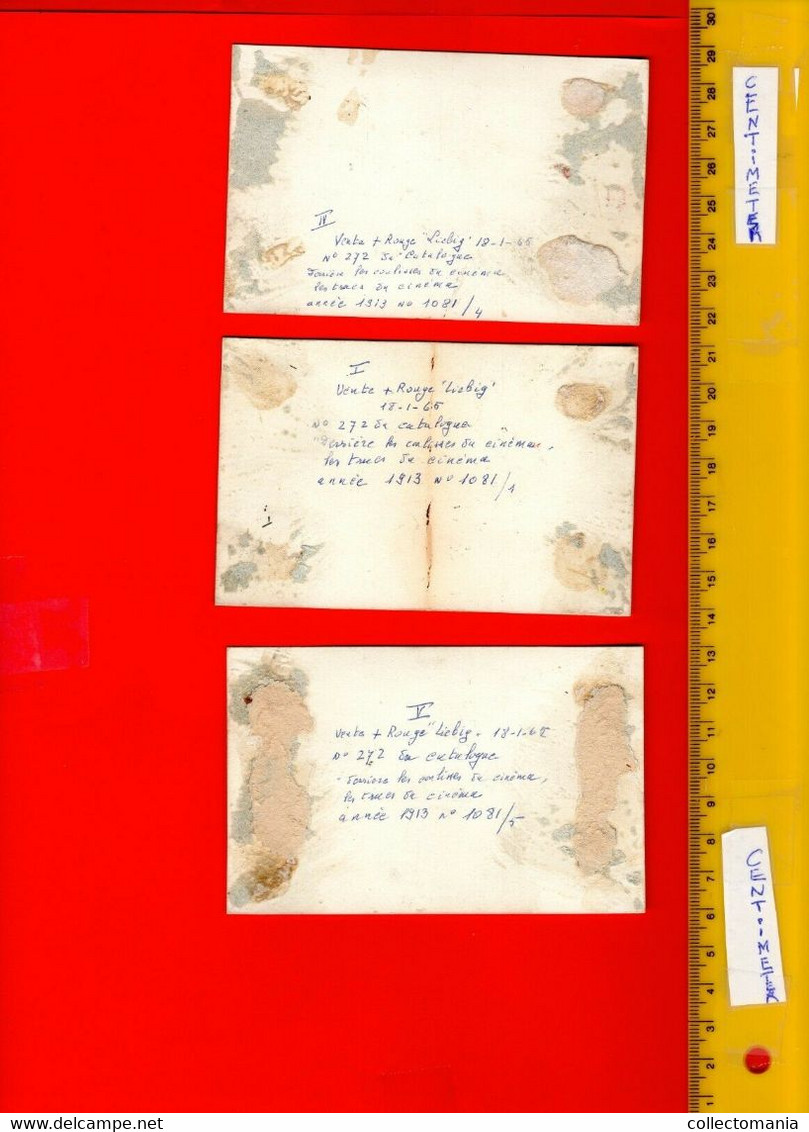 IV
Vente + Rouge "Liebig" 18-1-65
No 272 du catalogue
Derrière les coulisses du cinéma
les trucs du cinéma
année 1913 No 1081/4
I
Vente + Rouge "Liebig"
18-1-65
No 272 du catalogue
"Derrière les coulisses du cinéma,
les trucs du cinéma
année 1913 No 1081/1
V
Vente + Rouge "Liebig. 18-1-65
No 272 du catalogue
- Derrière les coulisses du cinéma,
les trucs du cinéma
année 1913 No 1081/5
30
29
28
27
26
25
24
23
22
21
20
19
18
17
16
15
14
13
12
11
10
9
8
7
6
5
4
3
2
1
CENTIMETER
CENTIMETER
collectomania